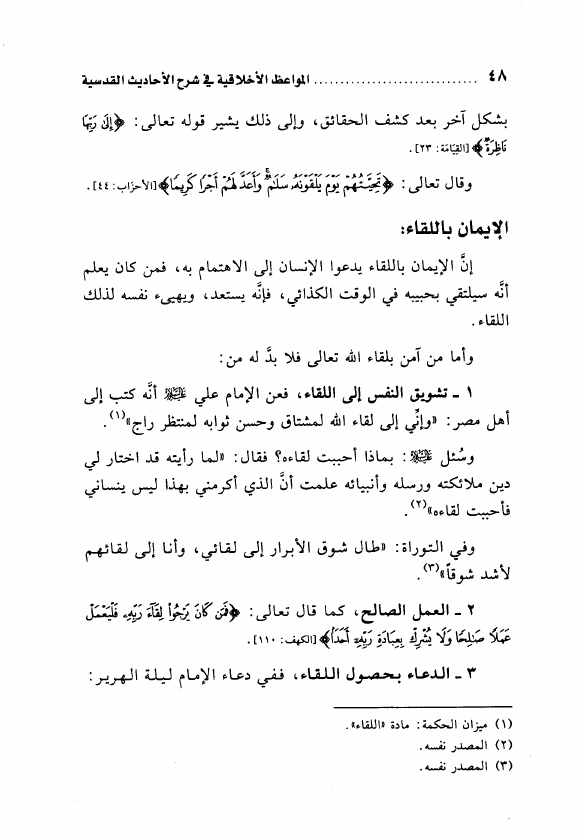 ٤٨ .............................. المواعظ الأخلاقية في شرح الأحاديث القدسية
بشكل آخر بعد كشف الحقائق، وإلى ذلك يشير قوله تعالى: ﴿إِلَىٰ رَبِّهَا
نَاظِرَةٌ﴾ [القِيَامَة: ٢٣].
وقال تعالى: ﴿تَحِيَّتُهُمْ يَوْمَ يَلْقَوْنَهُۥ سَلَٰمٌۚ وَأَعَدَّ لَهُمْ أَجْرًا كَرِيمًا﴾ [الأحزَاب: ٤٤].
الإيمان باللقاء:
إنَّ الإيمان باللقاء يدعوا الإنسان إلى الاهتمام به، فمن كان يعلم
أنَّه سيلتقي بحبيبه في الوقت الكذائي، فإنَّه يستعد، ويهيىء نفسه لذلك
اللقاء.
وأما من آمن بلقاء الله تعالى فلا بدَّ له من:
١ ـ تشويق النفس إلى اللقاء، فعن الإمام علي عليه السلام أنَّه كتب إلى
أهل مصر: «وإنِّي إلى لقاء الله لمشتاق وحسن ثوابه لمنتظر راج»(١).
وسُئل عليه السلام: بماذا أحببت لقاءه؟ فقال: «لما رأيته قد اختار لي
دين ملائكته ورسله وأنبيائه علمت أنَّ الذي أكرمني بهذا ليس ينساني
فأحببت لقاءه»(٢).
وفي التوراة: «طال شوق الأبرار إلى لقائي، وأنا إلى لقائهم
لأشد شوقاً»(٣).
٢ ـ العمل الصالح، كما قال تعالى: ﴿فَمَن كَانَ يَرْجُوا۟ لِقَآءَ رَبِّهِۦ فَلْيَعْمَلْ
عَمَلًا صَٰلِحًا وَلَا يُشْرِكْ بِعِبَادَةِ رَبِّهِۦٓ أَحَدًۢا﴾ [الكهف: ١١٠].
٣ ـ الدعاء بحصول اللقاء، ففي دعاء الإمام ليلة الهرير:
(١) ميزان الحكمة: مادة «اللقاء».
(٢) المصدر نفسه.
(٣) المصدر نفسه.